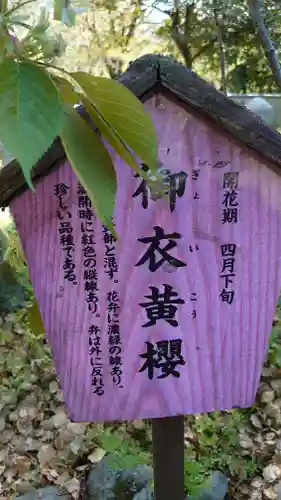 開花期 四月下旬
ぎょ い こう
御衣黄櫻
弁と混ず。花弁に濃緑の縦線あり。
満開時に紅色の縦線あり。弁は外に反れる
珍しい品種である。